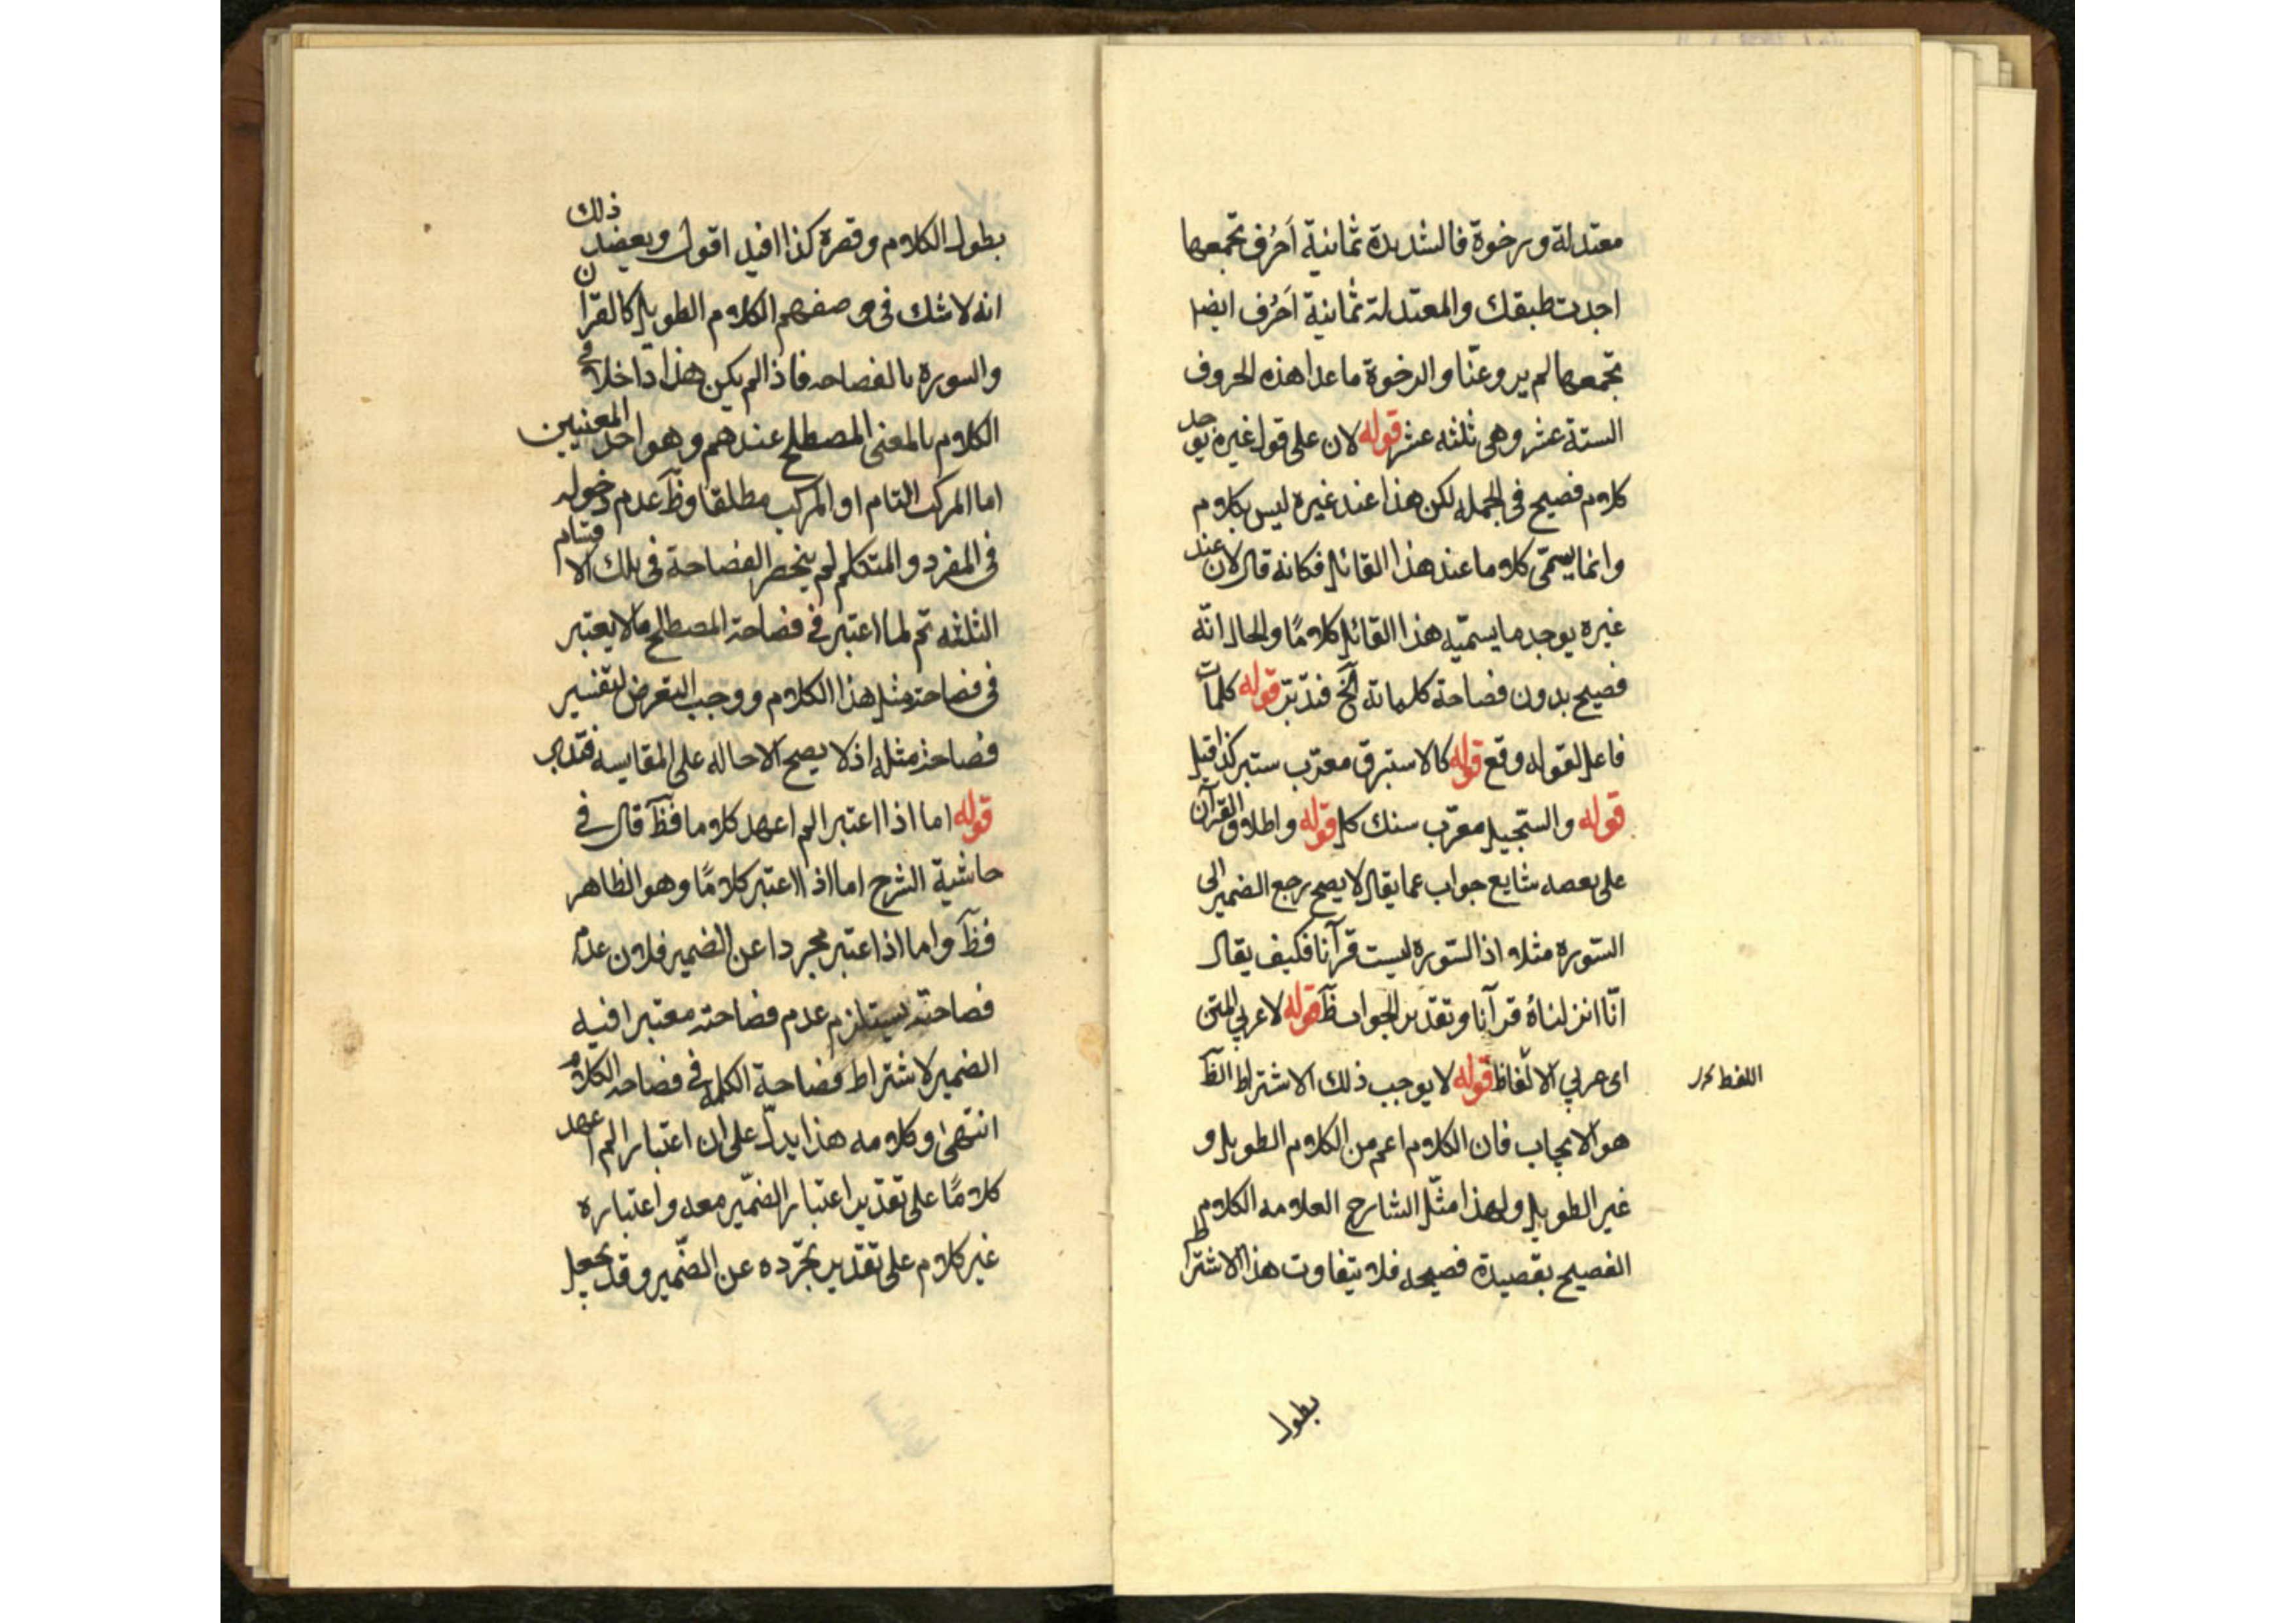 معتدلة ورخوة فالشديدة ثمانية اَحرُف تجمعها
اجدت طبقك والمعتدلة ثمانية اَحرُف ايضا
تجمعها لم يروعنّا والرخوة ماعدا هذه الحروف
الستة عشر وهى ثلثه عشر قوله لان على قول غيره يوجد
كلام فصيح فى الجمله لكن هذا عند غيره ليس بكلام
وانما يسمّى كلاما عند هذا القائل فكانه قال لان عند
غيره يوجد ما يسمّيه هذا القائل كلامًا والحال انّه
فصيح بدون فصاحة كلماته الخ فتدبّر قوله كلمات
فاعل لقوله وقع قوله كالاستبرق معرّب ستبر كذا قيل
قوله والسّجيل معرّب سنك كل قوله واطلاق القرآن
على بعصه شايع جواب عما يقال لا يصح رجع الضمير الى
السّوره مثلا اذ السّوره ليست قرآنا فكيف يقال
انّا انزلناهُ قرآنا وتقدير الجواب ظَ قوله لا عربى المتن
اى عربى الالفاظ قوله لا يوجب ذلك الاشتراط الظَ
اللفظ
هو الايجاب فان الكلام اعم من الكلام الطويل و
غير الطويل ولهذا مثّل الشارح العلامه الكلام
الفصيح بقصيدة فصيحه فلا يتفاوت هذا الاشتراط
بطول
بطول الكلام وقصره كذا افيد اقول ويعضد ذلك
انه لا شك فى وصفهم الكلام الطويل كالقرآن
والسوره بالفصاحه فاذا لم يكن هذا داخلا فى
الكلام بالمعنى المصطلح عندهم وهو احد المعنيين
اما المركب التام او المركب مطلقا وظَ عدم دخوله
فى المفرد والمتكلم لم ينحصر الفصاحة فى تلك الاقسام
الثلثه ثم لما اعتبر فى فصاحة المصطلح مالا يعتبر
فى فصاحة مثل هذا الكلام ووجب التعرض لتفسير
فصاحة مثله اذ لا يصح الاحاله على المقايسه فتدبر
قوله اما اذا اعتبر الم اعهد كلاما فظَ قال فى
حاشية الشرح اما اذا اعتبر كلامًا وهو الظاهر
فظَ واما اذا اعتبر مجردا عن الضمير فلان عدم
فصاحته يستلزم عدم فصاحته معتبرا فيه
الضمير لاشتراط فصاحة الكلمه فى فصاحه الكلام
انتهى وكلامه هذا يدلّ على ان اعتبار الم اعهد
كلامًا على تقدير اعتبار الضمّير معه واعتباره
غير كلام على تقدير تجرّده عن الضّمير وقد يجعل